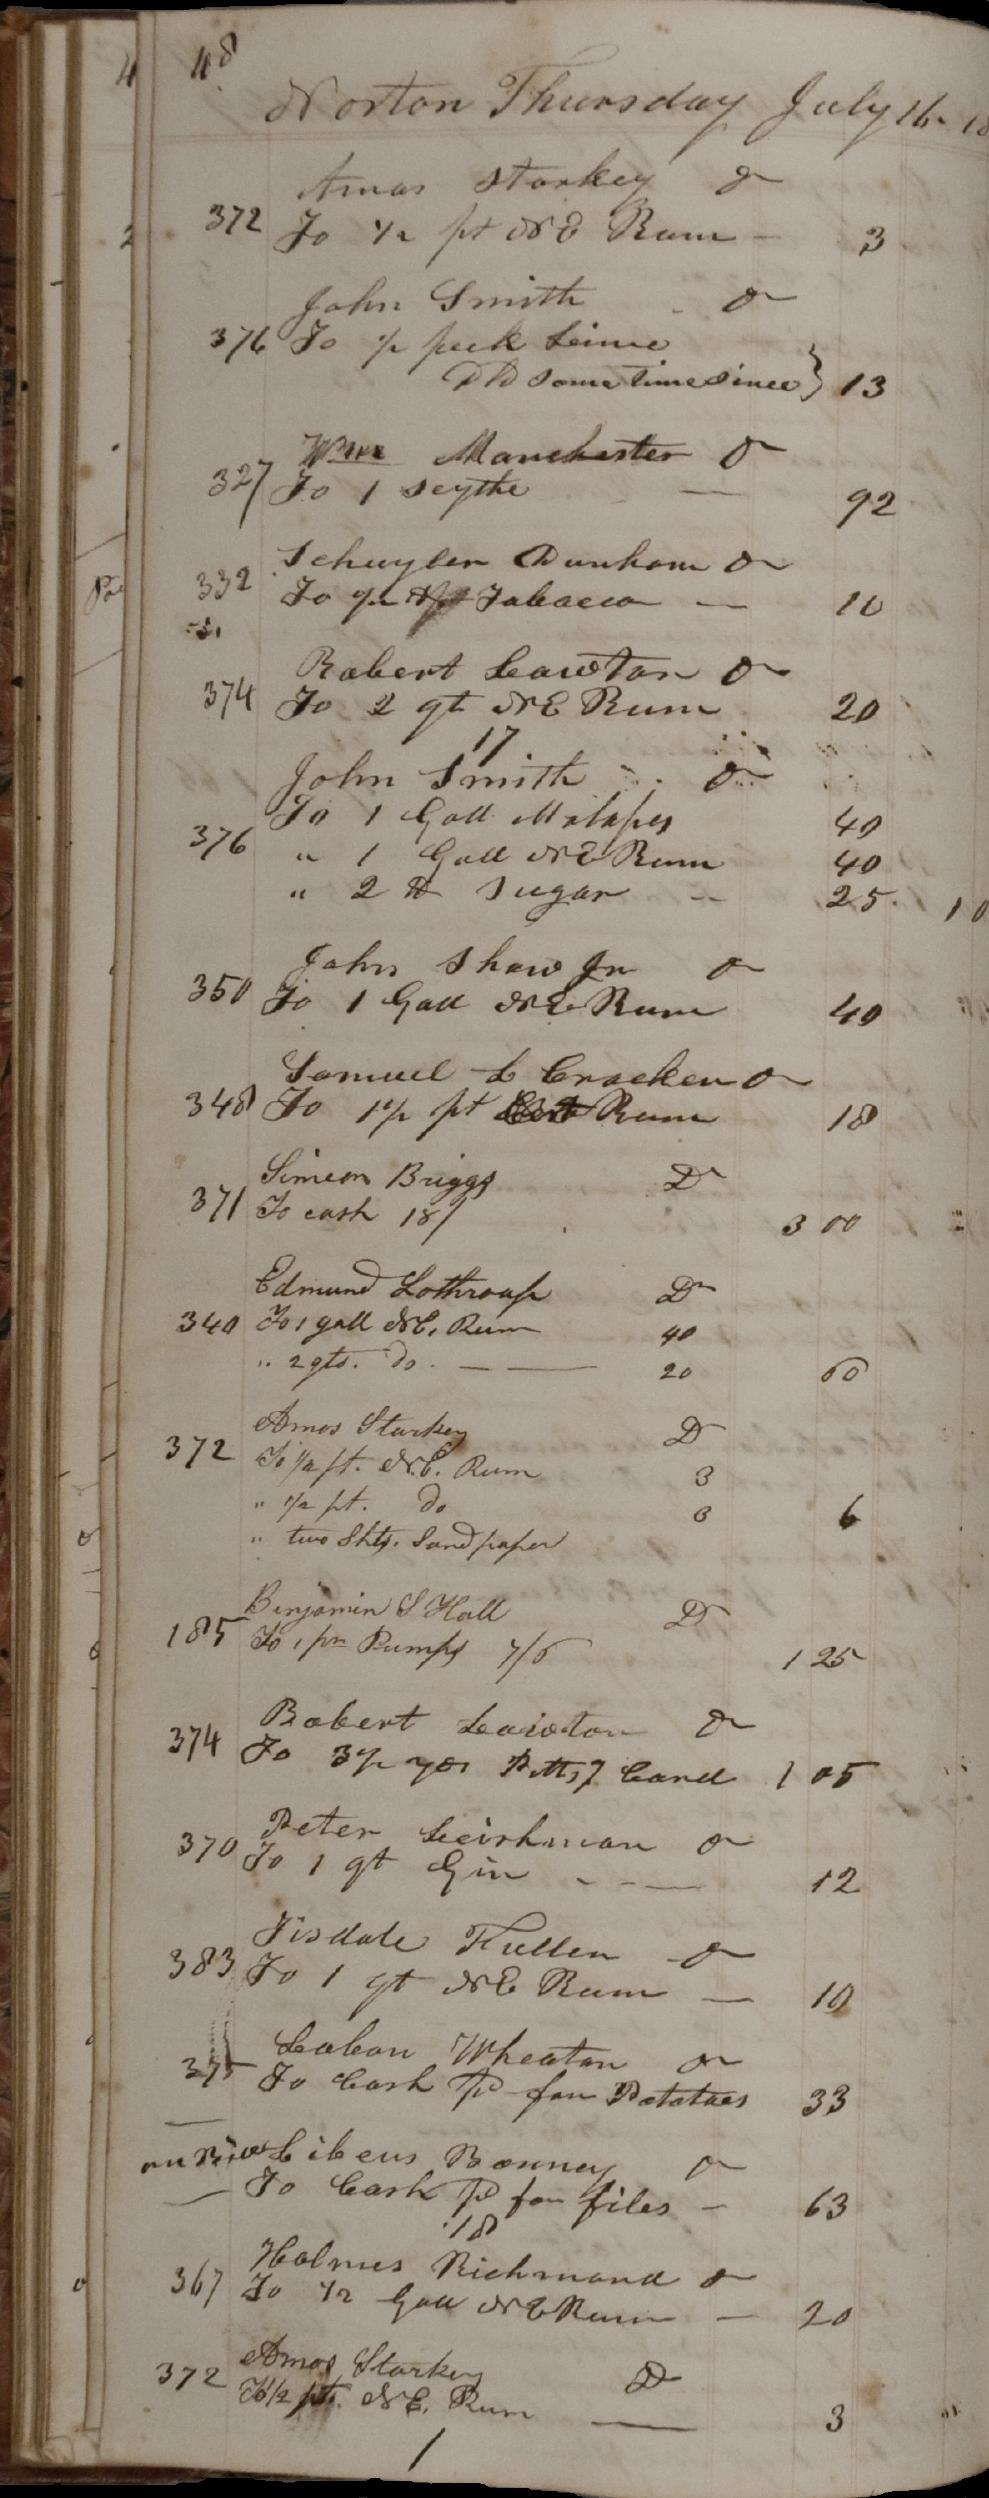 48
Norton Thursday July 16. 18
Amos Starkey Dr
372 To 1/2 pt NE Rum — 3
John Smith Dr
376 To 1/2 peck Lime
DD some time since } 13
Wm Manchester Dr
327 To 1 Scythe — 92
Schuyler Dunham Dr
332 To 1/2 lb Tobacco — 10
Robert Lawton Dr
374 To 2 qt NE Rum 20
17
John Smith Dr
376 To 1 Gall Molases 40
" 1 Gall NE Rum 40
" 2 lb Sugar — 25 1 0
John Shaw Jr Dr
350 To 1 Gall NE Rum 40
Samuel L Crocker Dr
348 To 1 1/2 pt Rum 18
Simeon Briggs Dr
371 To cash 18/ 3 00
Edmund Lothroup Dr
340 To 1 gall N.E. Rum 40
" 2 qts. Do. — 20 60
Amos Starkey Dr
372 To 1/2 pt. N.E. Rum 3
" 1/2 pt. Do 3 6
" two Shts. Sand paper
Benjamin S Hall Dr
185 To 1 pr Pumps 7/6 1 25
Robert Lawton Dr
374 To 3 1/2 yds Cord 1 05
Peter Leishman Dr
370 To 1 qt Gin — 12
Tisdale Fuller Dr
383 To 1 qt NE Rum — 10
Laban Wheaton Dr
375 To Cash Pd for Potatoes 33
Libeus Bonney Dr
To Cash Pd for files — 63
18
Holmes Richmond Dr
367 To 1/2 Gall NE Rum — 20
Amos Starkey Dr
372 To 1/2 pt. N.E. Rum — 3